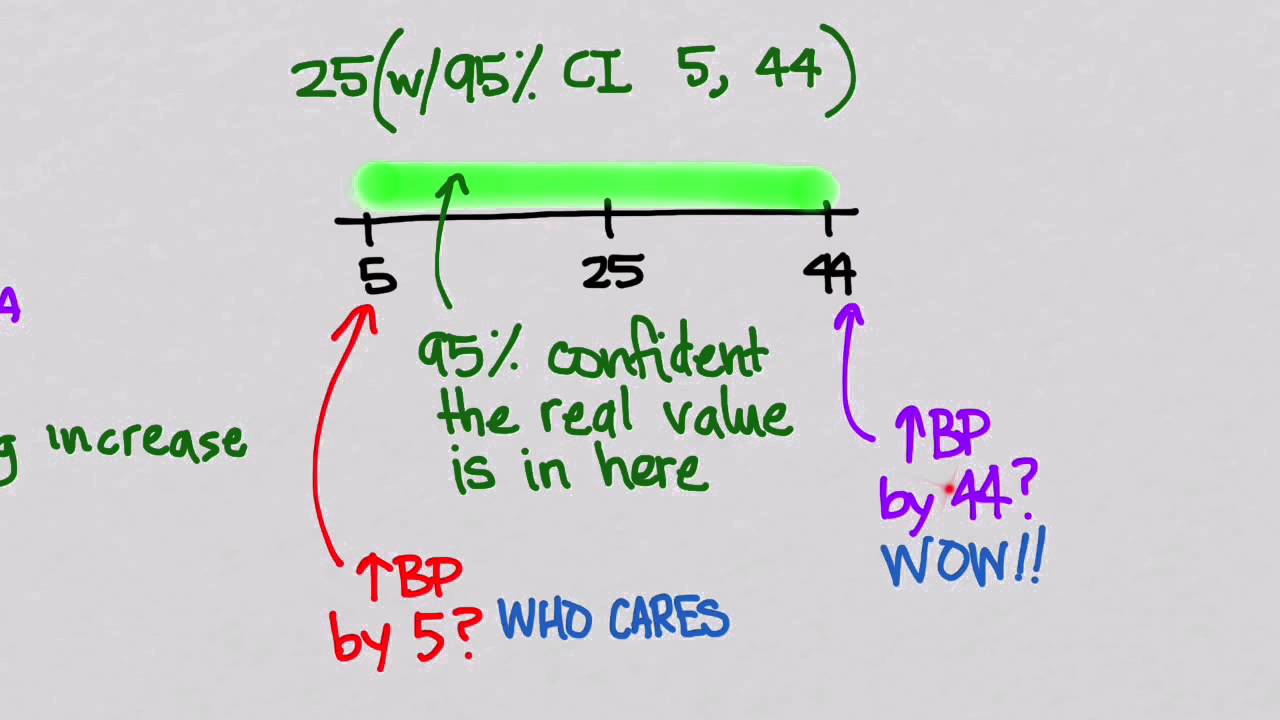 25(w/95% CI 5, 44)
5 25 44
95% confident
the real value
is in here
A
g increase
↑BP
by 44?
WOW!!
↑BP
by 5? WHO CARES